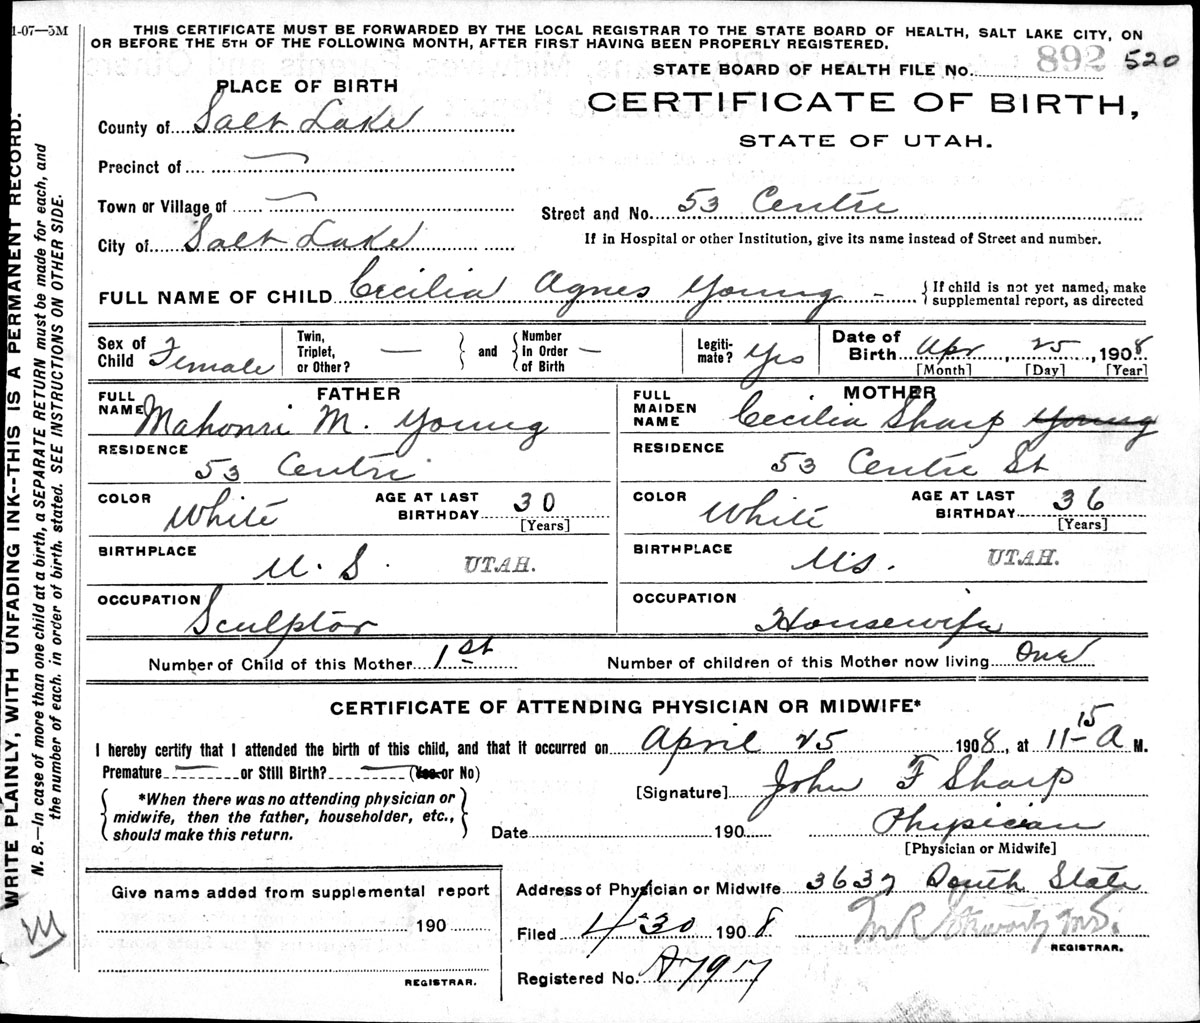 1-07—5M
THIS CERTIFICATE MUST BE FORWARDED BY THE LOCAL REGISTRAR TO THE STATE BOARD OF HEALTH, SALT LAKE CITY, ON
OR BEFORE THE 5TH OF THE FOLLOWING MONTH, AFTER FIRST HAVING BEEN PROPERLY REGISTERED.
STATE BOARD OF HEALTH FILE No. 892 520
PLACE OF BIRTH
CERTIFICATE OF BIRTH,
STATE OF UTAH.
County of Salt Lake
Precinct of —
Town or Village of —
Street and No. 53 Centre
City of Salt Lake
If in Hospital or other Institution, give its name instead of Street and number.
FULL NAME OF CHILD Cecilia Agnes Young -
{ If child is not yet named, make
supplemental report, as directed
Sex of Child Female
Twin, Triplet, or Other? — } and { Number In Order of Birth —
Legitimate? Yes
Date of Birth Apr, 25, 1908
[Month] [Day] [Year]
FATHER
FULL NAME Mahonri M. Young
RESIDENCE 53 Centre
COLOR White
AGE AT LAST BIRTHDAY 30
[Years]
BIRTHPLACE U. S. UTAH.
OCCUPATION Sculptor
MOTHER
FULL MAIDEN NAME Cecilia Sharp Young
RESIDENCE 53 Centre St
COLOR White
AGE AT LAST BIRTHDAY 36
[Years]
BIRTHPLACE U.S. UTAH.
OCCUPATION Housewife
Number of Child of this Mother 1st
Number of children of this Mother now living One
CERTIFICATE OF ATTENDING PHYSICIAN OR MIDWIFE*
I hereby certify that I attended the birth of this child, and that it occurred on April 25 1908, at 11-15 A M.
Premature — or Still Birth? — (Yes or No)
{ *When there was no attending physician or
midwife, then the father, householder, etc.,
should make this return. }
[Signature] John F Sharp
Date 190
Physician
[Physician or Midwife]
Give name added from supplemental report
190
REGISTRAR.
Address of Physician or Midwife 3637 South State
Filed 4-30 1908.
REGISTRAR.
Registered No. A7917
WRITE PLAINLY, WITH UNFADING INK--THIS IS A PERMANENT RECORD.
N. B.—In case of more than one child at a birth, a SEPARATE RETURN must be made for each, and
the number of each, in order of birth, stated. SEE INSTRUCTIONS ON OTHER SIDE.